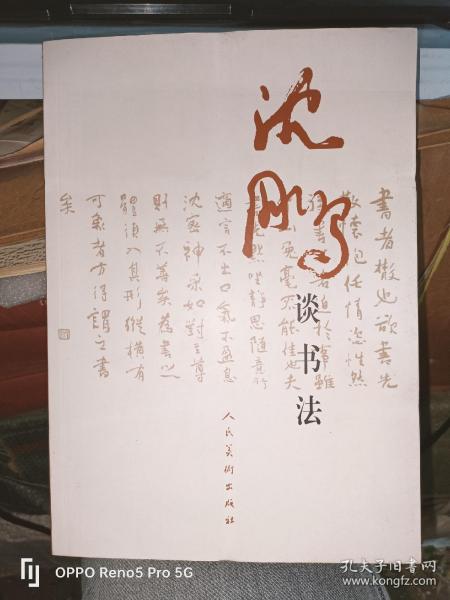 沈鹏
谈书法
書者散也欲書先
散懷抱任情恣性然
書之若迫於事雖
兔毫不能佳也夫
默坐靜思隨意所
適言不出口氣不盈息
沈密神采如對至尊
則無不善矣為書之
體須入其形縱橫有
可象者方得謂之書
矣
人民美術出版社
OPPO Reno5 Pro 5G
孔夫子旧书网
www.kongfz.com